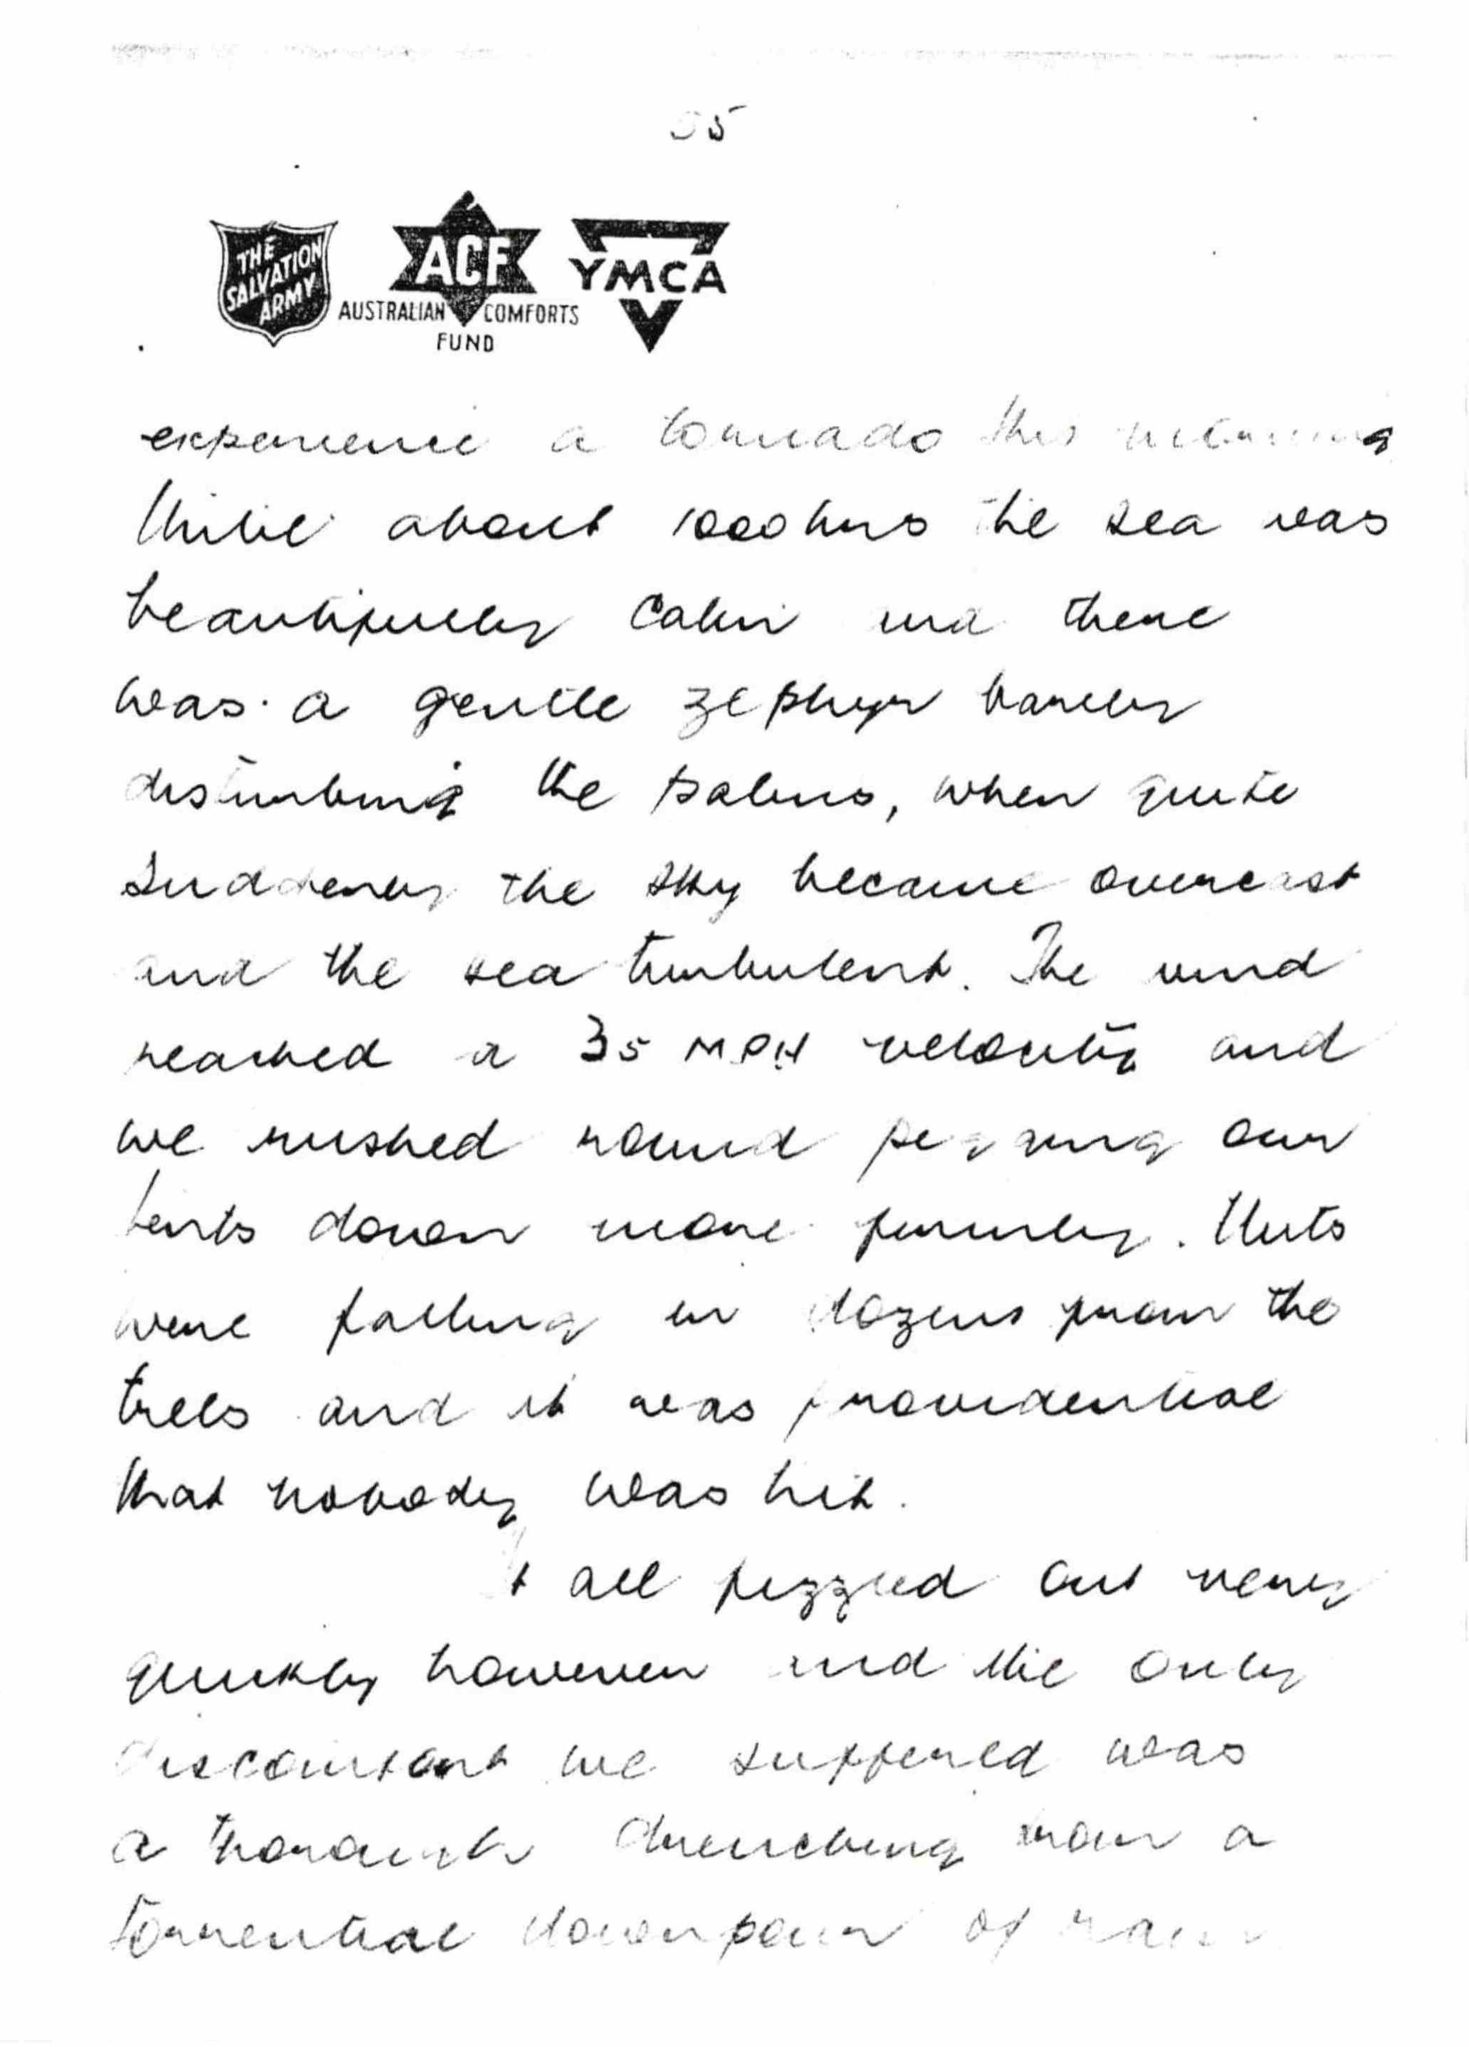 55
THE SALVATION ARMY
ACF
AUSTRALIAN COMFORTS FUND
YMCA
experience a tornado this morning
Until about 1000 hrs the sea was
beautifully calm and there
was a gentle zephyr barely
disturbing the palms, when quite
suddenly the sky became overcast
and the sea turbulent. The wind
reached a 35 MPH velocity and
we rushed round pegging our
tents down more firmly. Nuts
were falling in dozens from the
trees and it was providential
that nobody was hit.
It all fizzled out very
quickly however and the only
discomfort we suffered was
a thorough drenching from a
torrential downpour of rain